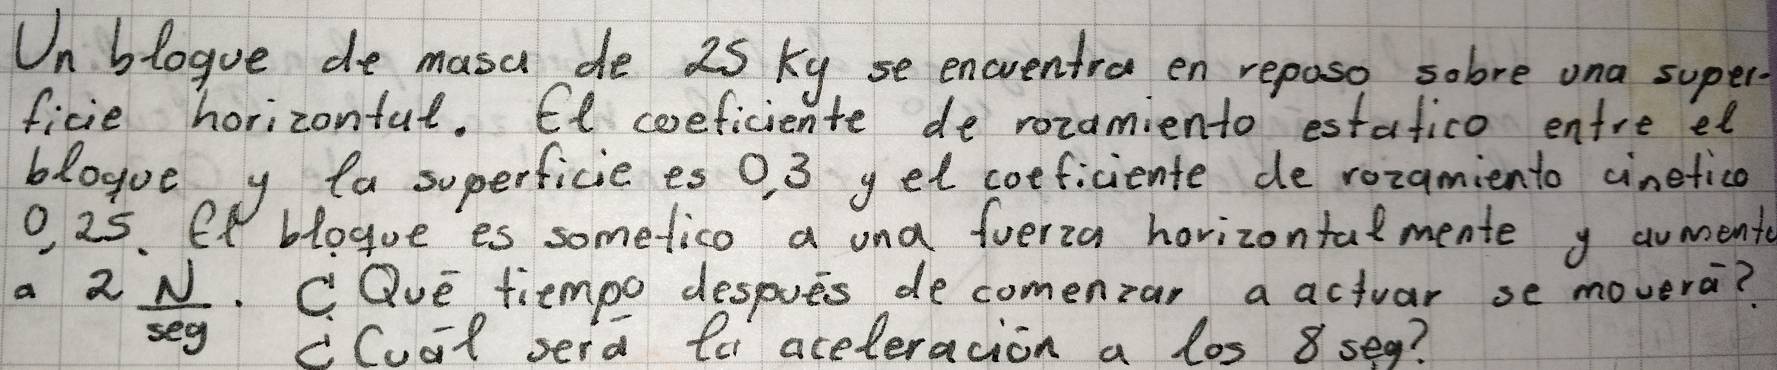 Un bloque de masa de 25 Kg se encuentra en reposo sobre una super-
ficie horizontal. El coeficiente de rozamiento estatico entre el
bloque y la superficie es 0,3 y el coeficiente de rozamiento cinetico
0,25. El bloque es sometico a una fuerza horizontalmente y aumenta
a 2 N/seg. ¿Qué tiempo después de comenzar a actuar se moverá?
¿Cuál será la aceleración a los 8 seg?